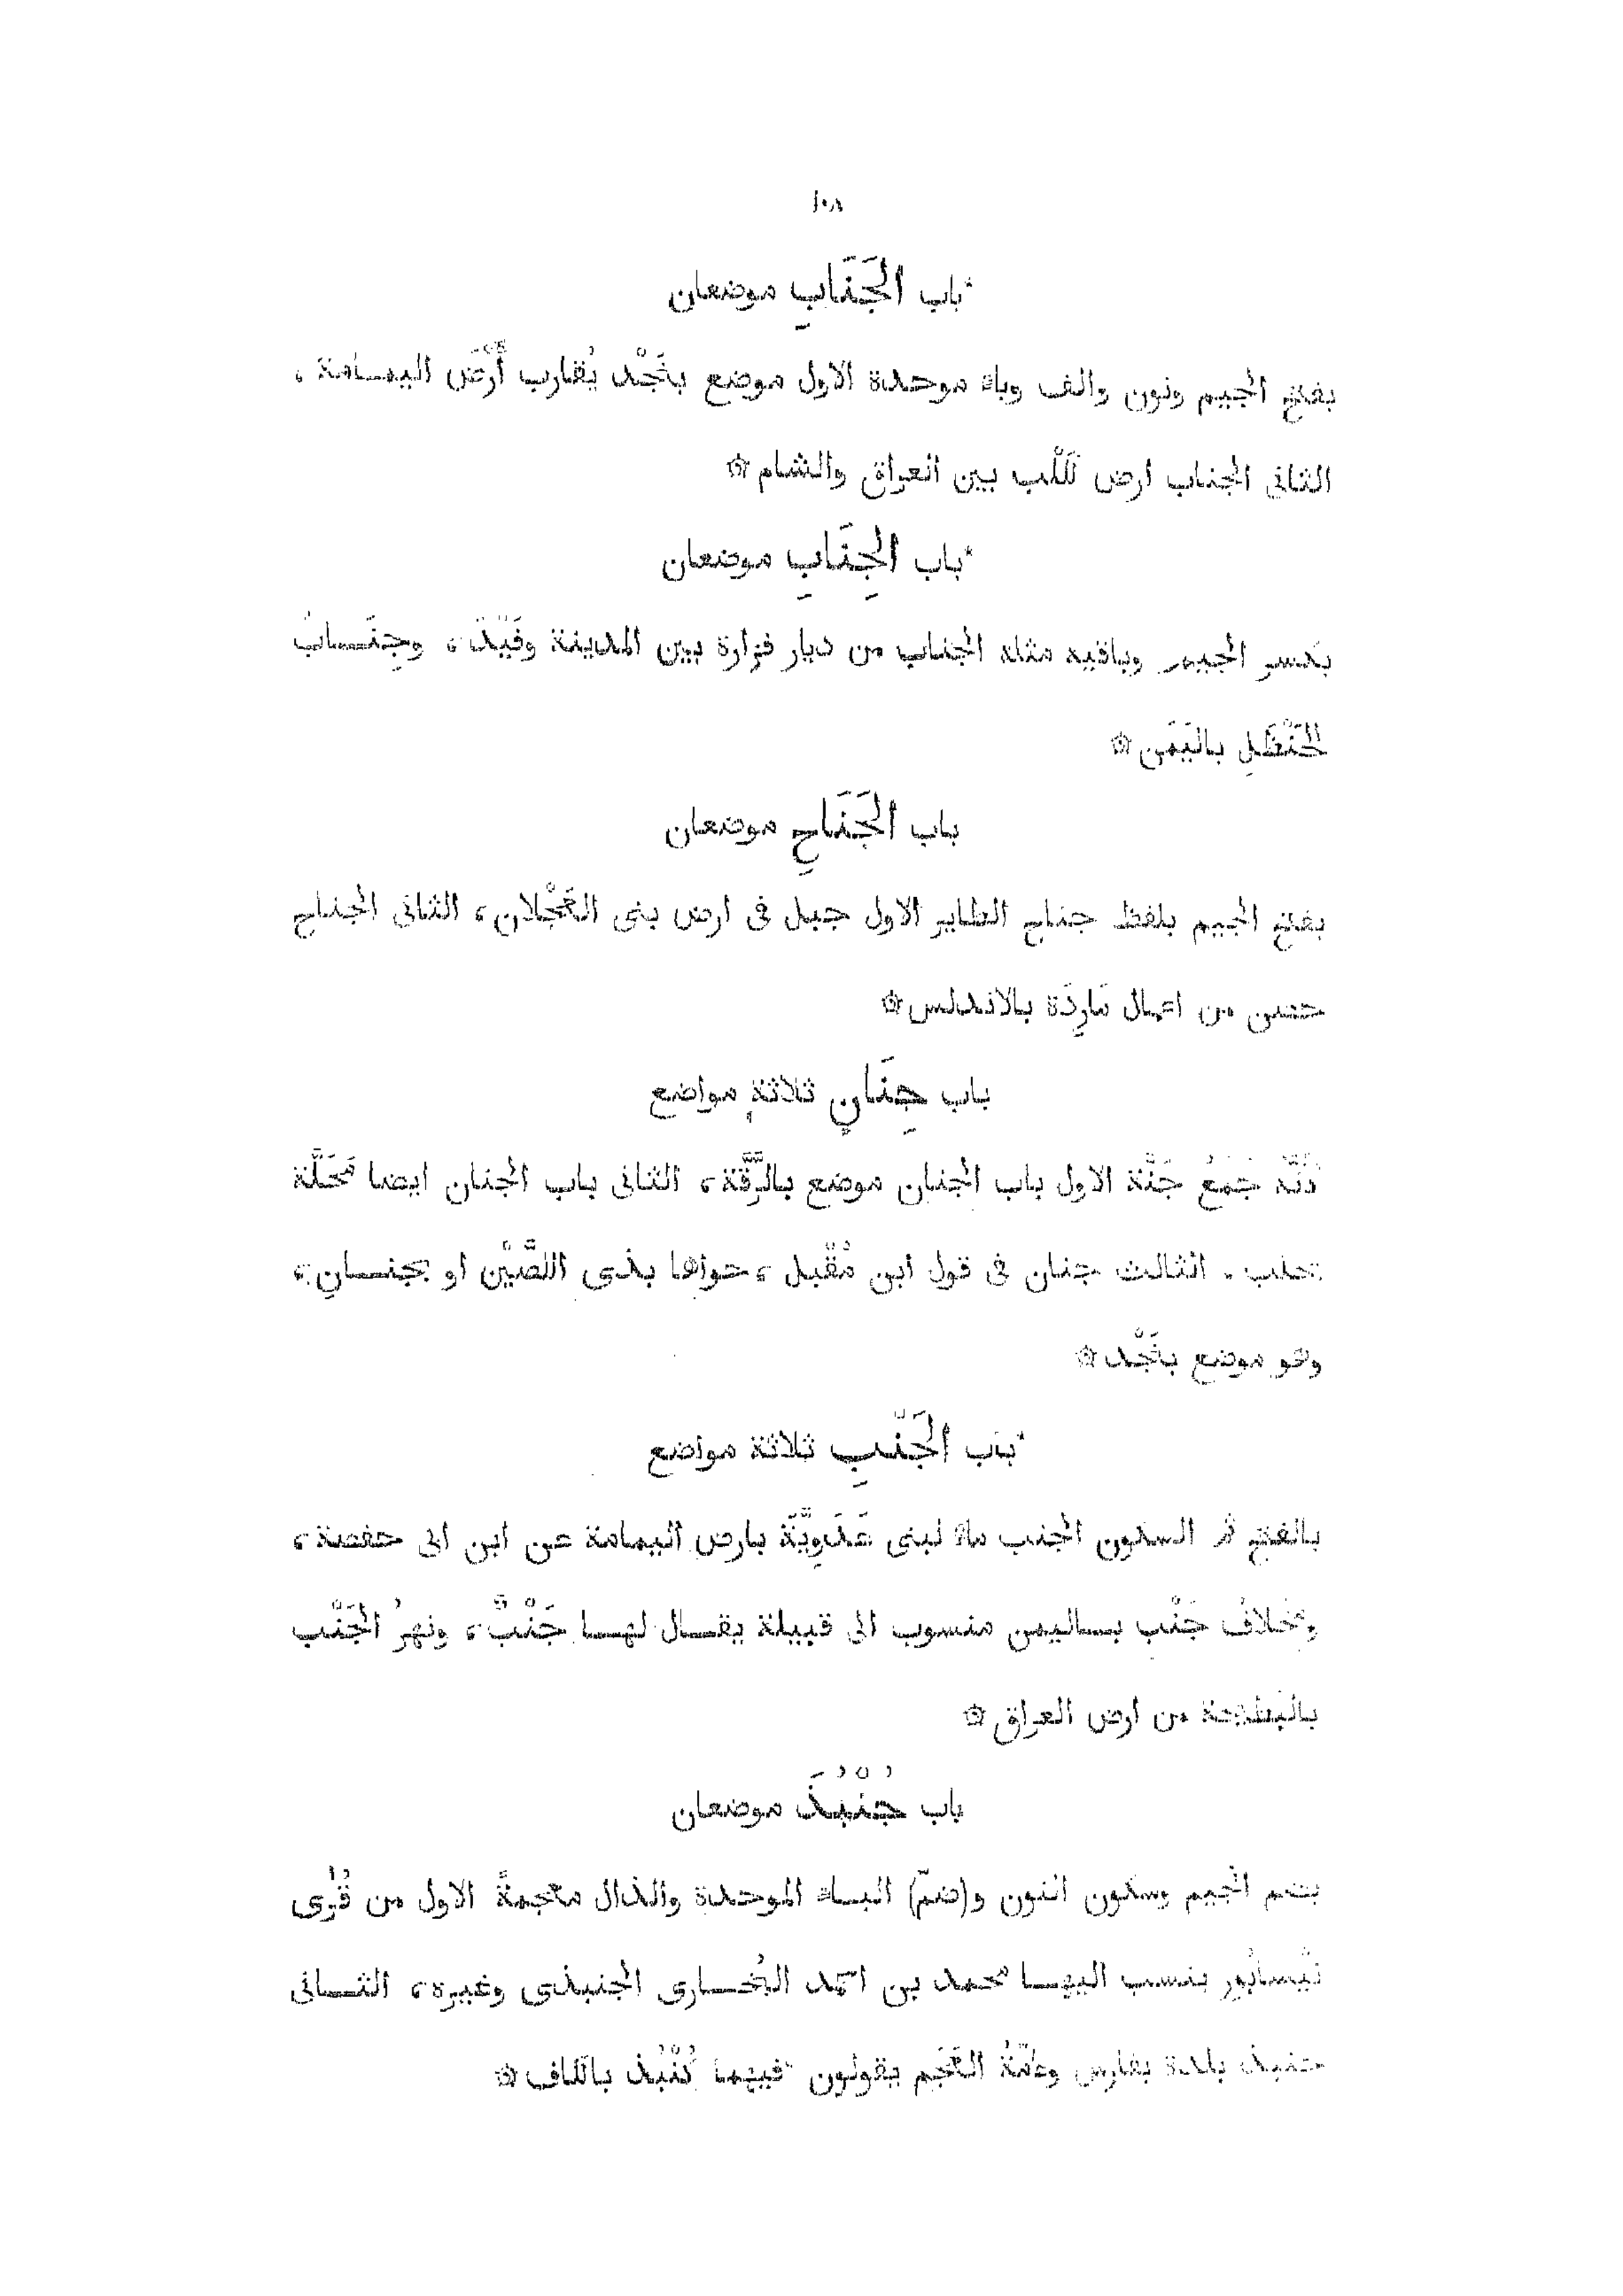 ١٠٨
*باب الجَنَابِ موضعان
بفتح الجيم ونون والف وباء موحدة الاول موضع بنَجْد يُقارب أَرْضَ اليمـامة ،
الثانى الجناب ارض لكَلْب بين العراق والشام ۞
*باب الجِنَابِ موضعان
بكسر الجيم وباقيه مثله الجناب من ديار فزارة بين المدينة وفَيْدَ ، وجِنَـابُ
الحَنْظَلِ باليَمَن ۞
باب الجَنَاحِ موضعان
بفتح الجيم بلفظ جناح الطاير الاول جبل فى ارض بنى العَجْلان ، الثانى الجناح
حصن من اعمال مَارِدَة بالاندلس ۞
باب جِنَانٍ ثلاثة مواضع
كأَنَّه جَمْعُ جَنَّة الاول باب الجنان موضع بالرَّقَّة ، الثانى باب الجنان ايضا مَحَلَّة
بحلب ، الثالث جنان فى قول ابن مُقْبل ، حواها بذى اللصَّيْن او بجنـانِ ،
وهو موضع بنَجْد ۞
*باب الجَنْبِ ثلاثة مواضع
بالفتح ثم السكون الجنب ماء لبنى عَدَوِيَّة بارض اليمامة عن ابن ابى حفصة ،
ومخلافُ جَنْب بـاليمن منسوب الى قبيلة يقـال لهـا جَنْبٌ ، ونهرُ الجَنْب
بالبطيحة من ارض العراق ۞
باب جُنْبُذَ موضعان
بضم الجيم وسكون النون و(ضمّ) البـاء الموحدة والذال معجمةً الاول من قُرَى
نَيْسابُور ينسب اليهـا محمد بن احمد البُخـارى الجنبذى وغيره ، الثـانى
جنبذ بلدة بفارس وعامّةُ العَجَم يقولون فيهما كُنْبُذ بالكاف ۞